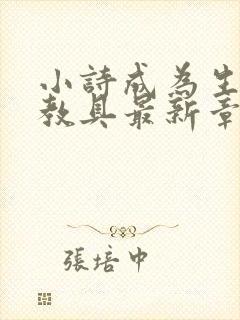 小詩成為生
教具最新章
張培中